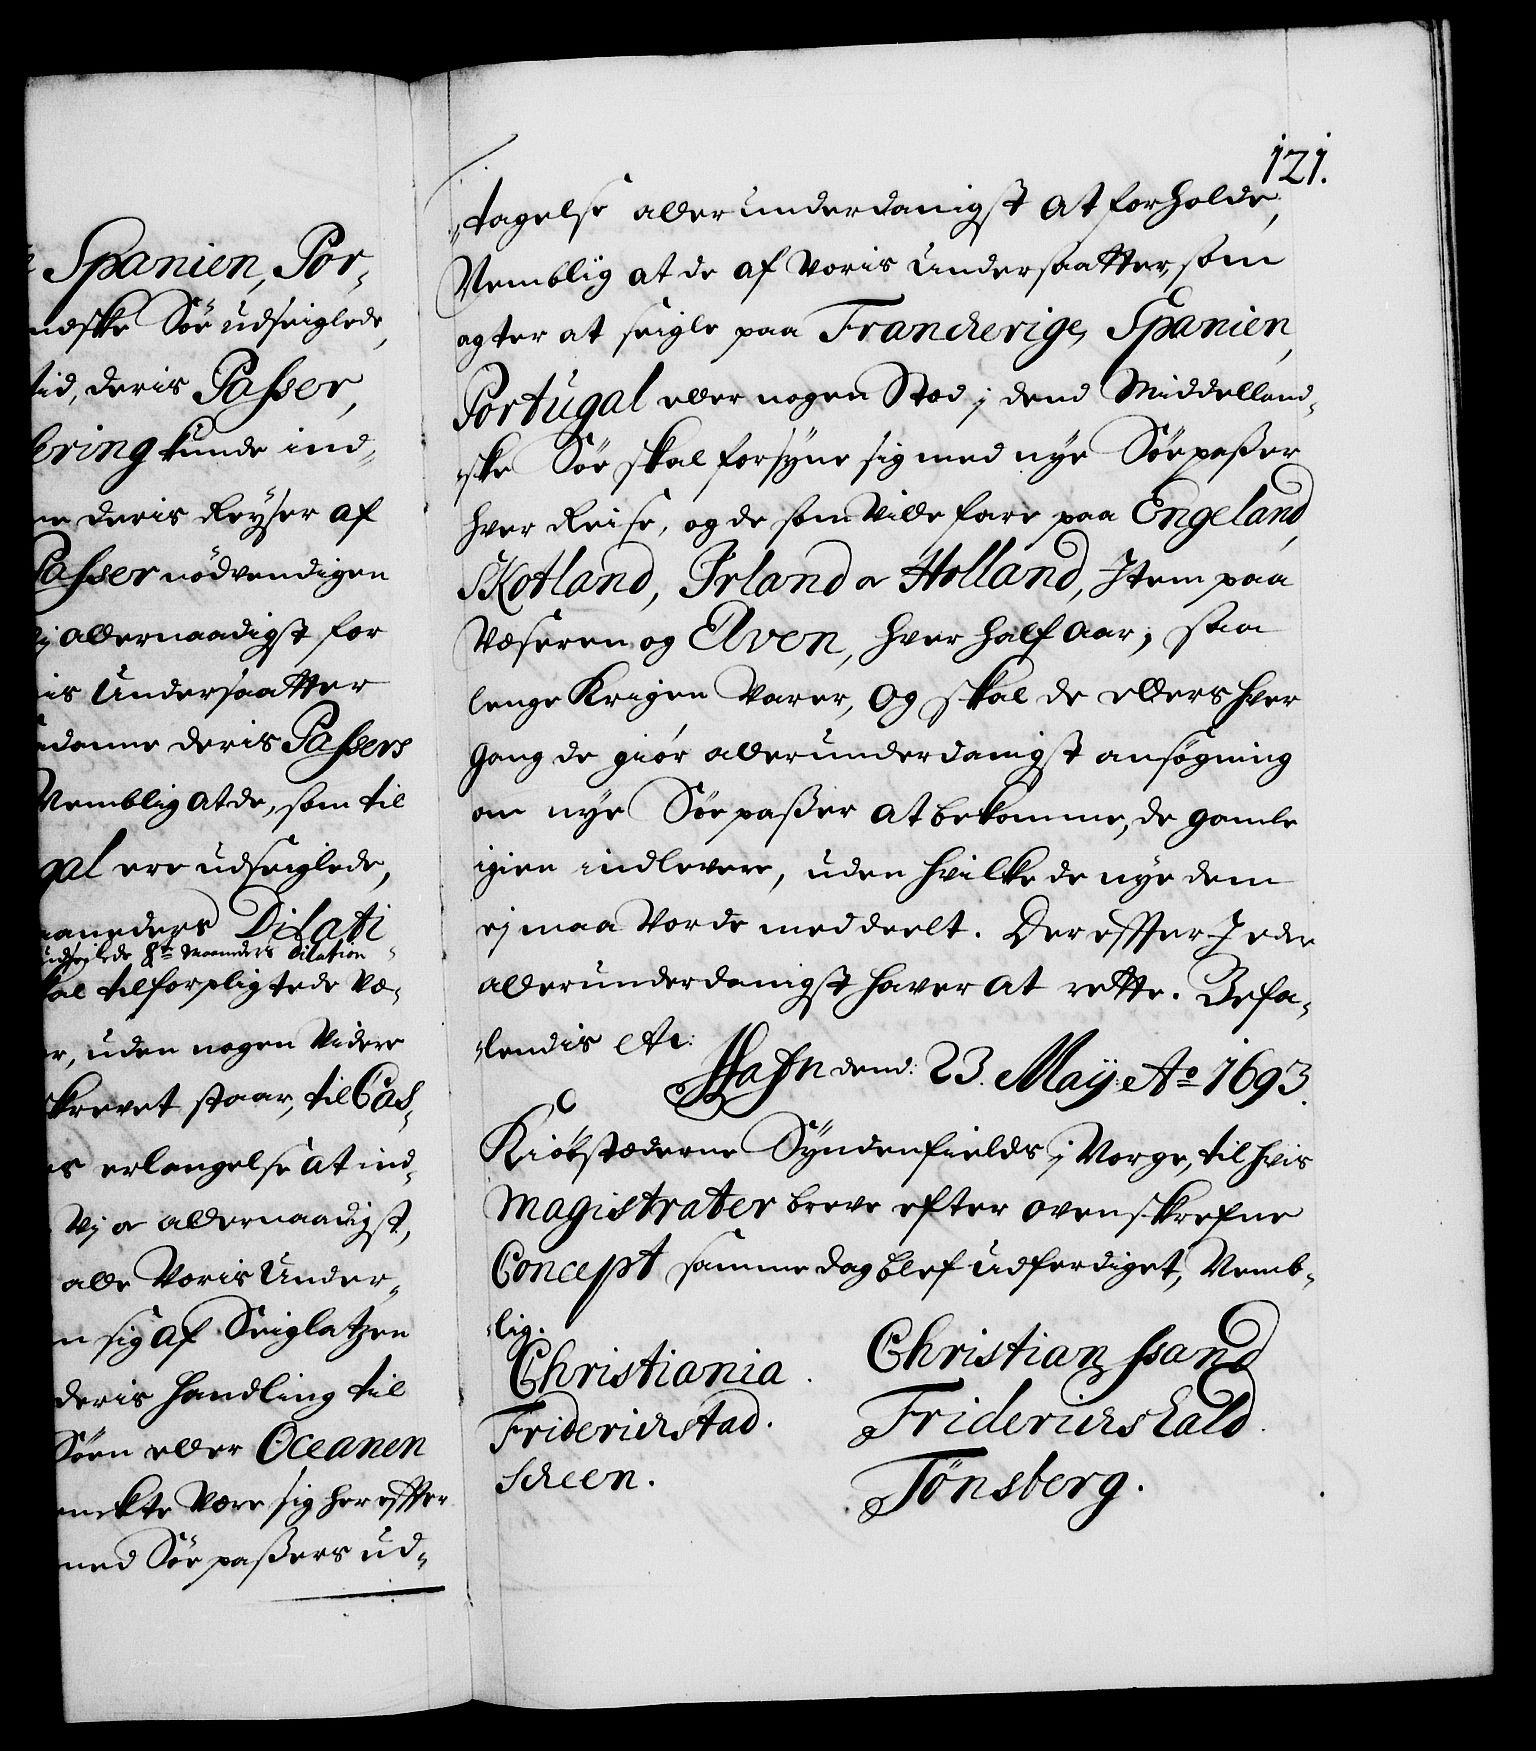 Spanien, Por-
ndske Söe udseiglede,
tid, deris Passer,
bring kunde ind-
ne deris Reyser af
Passer nödvendigen
Vj allernaadigst for
is Undersaatter
udanne deris Passers
Nemblig at de, som til
gal ere udseiglede,
aaneders Dilati-
udseilede 8te Maaneders Dilation
kal tilforpligtede væ-
er, uden nogen videre
skrevet staar, til Cas-
es erlangelse at ind-
Vj or allernaadigst,
alle Voris Under-
n sig af Seiglatzen
deris handling til
Söen eller Oceanen
enckte være sig her effter
med Söe passers ud-
121.
-tagelse allerunderdanigst at forholde,
Nemblig at de af Voris Undersaatter, som
agter at seigle paa Franckerige, Spanien,
Portugal eller nogen Stæd j dend Middelland-
-ske Söe skal forsyne sig med nye Söepasser
hver Reise, og de som ville fare paa Engeland,
Skotland, Irland or Holland, Item paa
Wæseren og Elven, hver half Aar, saa
lenge Krigen varer, og skal de ellers hver
gang de giör allerunderdanigst ansögning
om nye Söe passer at bekomme, de gamle
igien indlevere, uden hvilke de nye dem
ej maa vorde meddeelt. Der effter I eder
allerunderdanigst haver at rette. Befa-
-lendis etc:
Hafn dend: 23. Maÿ: Ao 1693.
Kiöbstæderne Syndenfields j Norge, til hvis
Magistrater breve efter ovenskrefne
Concept samme dag blef udferdiget, Nemb-
-lig.
Christiania. Christianssand
Friderichstad. Friderichshald.
Scheen. Tönsberg.